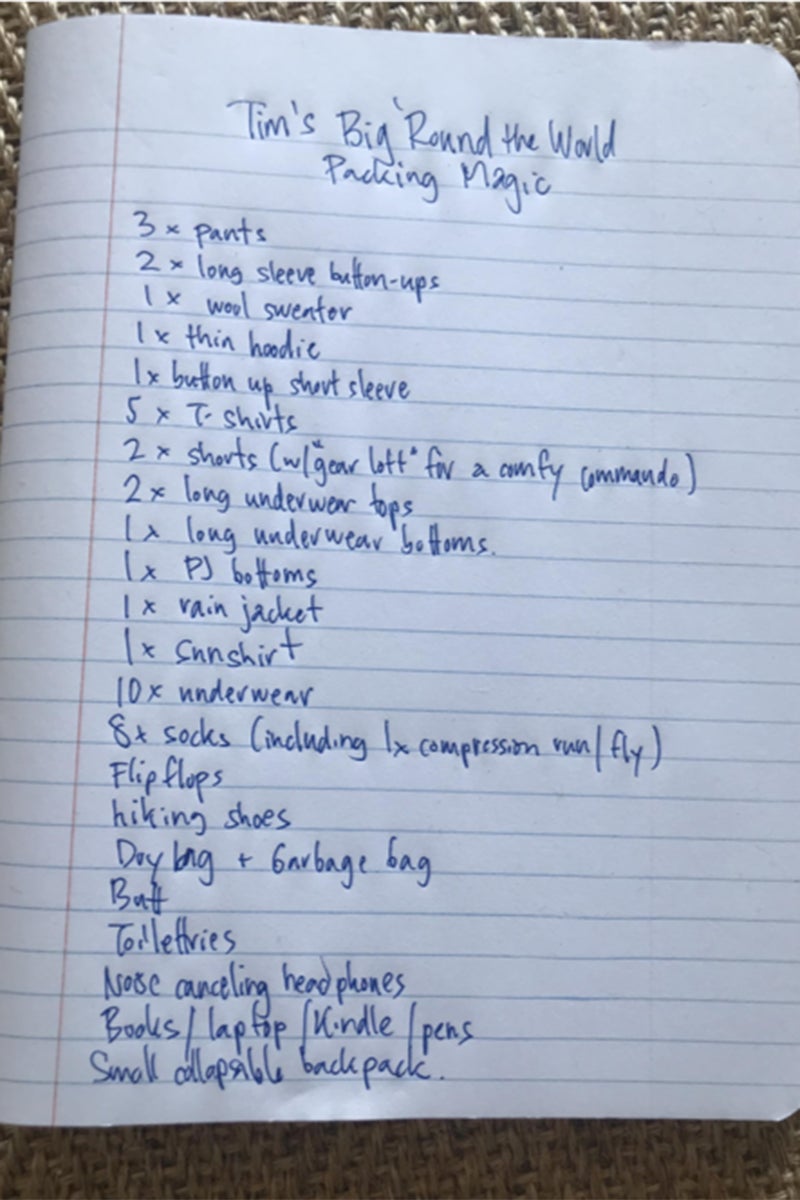 Tim's Big 'Round the World
Packing Magic
3 x pants
2 x long sleeve button-ups
1 x wool sweater
1 x thin hoodie
1x button up short sleeve
5 x T-shirts
2 x shorts (w/"gear loft" for a comfy commando)
2x long underwear tops
1x long underwear bottoms.
1x PJ bottoms
1x rain jacket
1x sunshirt
10x underwear
8x socks (including 1x compression run/fly)
Flip flops
hiking shoes
Dry bag + Garbage bag
Buff
Toilettries
Noise canceling headphones
Books/laptop/Kindle/pens
Small collapsible backpack.